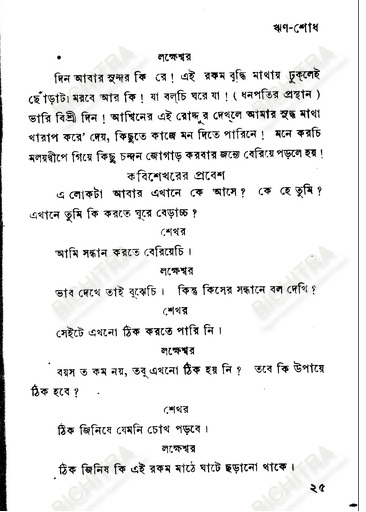 ঋণ-শোধ
লক্ষেশ্বর
দিন আবার সুন্দর কি রে! এই রকম বুদ্ধি মাথায় ঢুকলেই
ছোঁড়াটা মরবে আর কি! যা বলচি ঘরে যা! (ধনপতির প্রস্থান)
ভারি বিশ্রী দিন! আশ্বিনের এই রোদ্দুর দেখ্‌লে আমার সুদ্ধ মাথা
খারাপ করে' দেয়, কিছুতে কাজে মন দিতে পারিনে! মনে করচি
মলয়দ্বীপে গিয়ে কিছু চন্দন জোগাড় করবার জন্যে বেরিয়ে পড়লে হয়!
কবিশেখরের প্রবেশ
এ লোকটা আবার এখানে কে আসে? কে হে তুমি?
এখানে তুমি কি করতে ঘুরে বেড়াচ্চ?
শেখর
আমি সন্ধান করতে বেরিয়েচি।
লক্ষেশ্বর
ভাব দেখে তাই বুঝেচি। কিন্তু কিসের সন্ধানে বল দেখি?
শেখর
সেইটে এখনো ঠিক করতে পারি নি।
লক্ষেশ্বর
বয়স ত কম নয়, তবু এখনো ঠিক হয় নি? তবে কি উপায়ে
ঠিক হবে?
শেখর
ঠিক জিনিষে যেমনি চোখ পড়বে।
লক্ষেশ্বর
ঠিক জিনিষ কি এই রকম মাঠে ঘাটে ছড়ানো থাকে।
২৫
BICHITRA